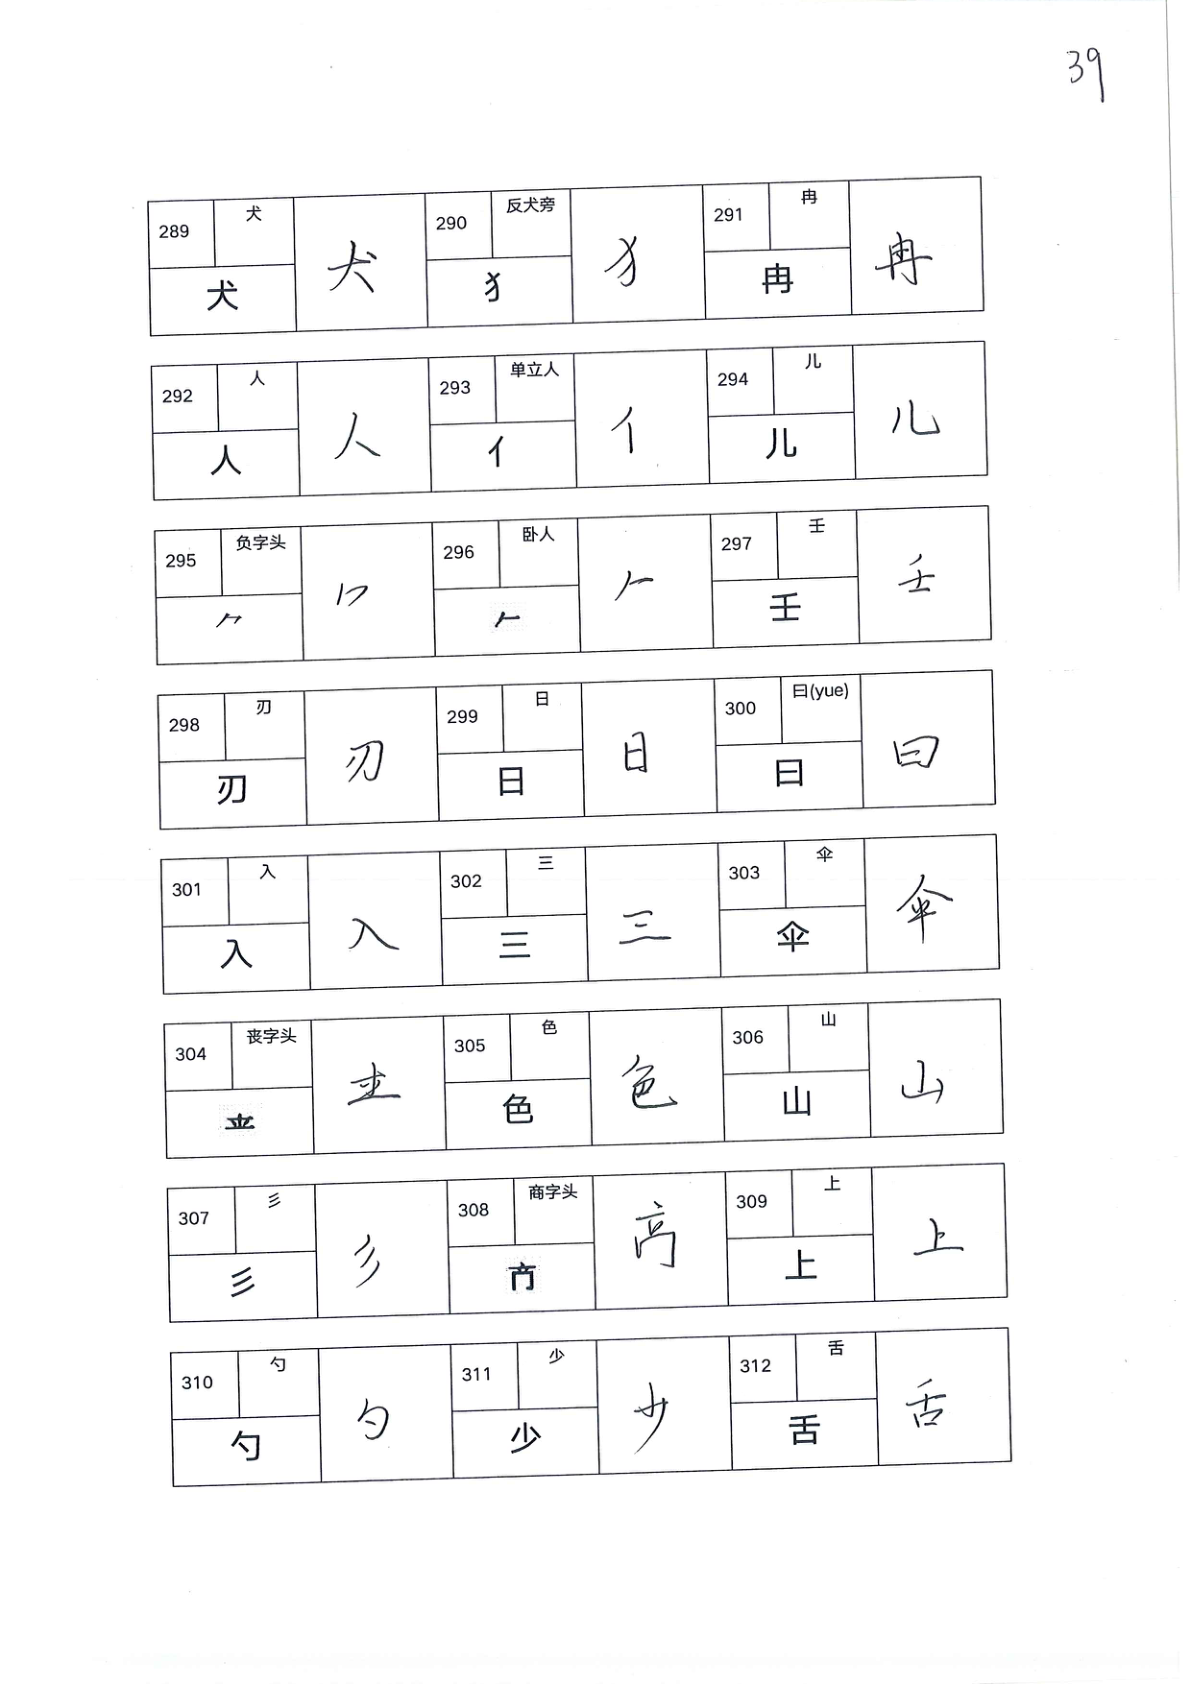 39
289 犬 犬 290 反犬旁 犭 291 冉 冉
犬 犭 冉
292 人 人 293 单立人 亻 294 儿 儿
人 亻 儿
295 负字头 ⺈ 296 卧人 𠂉 297 壬 壬
⺈ 𠂉 壬
298 刃 刃 299 日 日 300 曰(yue) 曰
刃 日 曰
301 入 入 302 三 三 303 伞 伞
入 三 伞
304 丧字头 305 色 色 306 山 山
色 山
307 彡 彡 308 商字头 309 上 上
彡 上
310 勺 勺 311 少 少 312 舌 舌
勺 少 舌